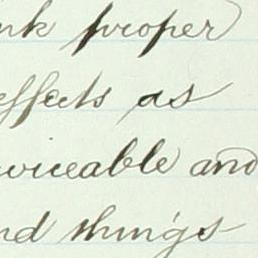 nk proper
effects as
viceable and
nd things